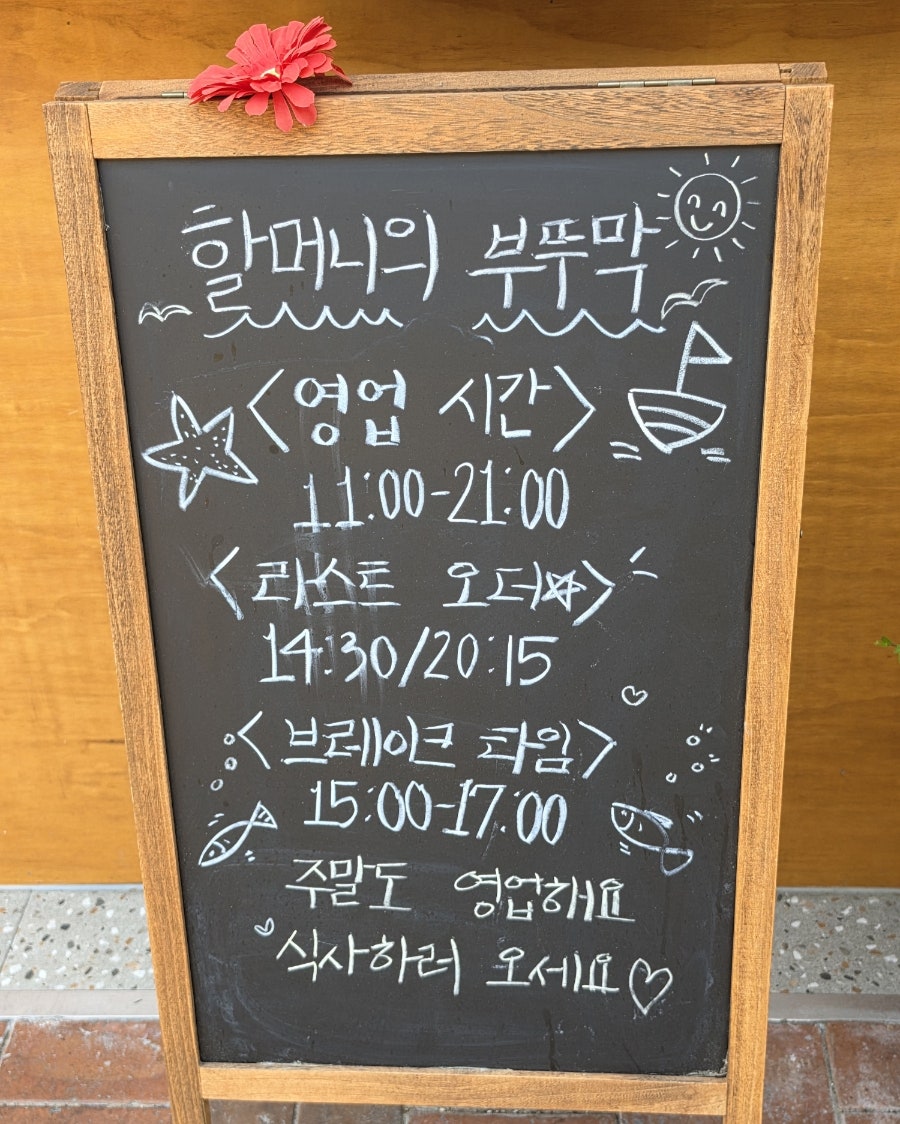 할머니의 부뚜막
<영업 시간>
11:00-21:00
<라스트 오더☆>
14:30/20:15
<브레이크 타임>
15:00-17:00
주말도 영업해요
식사하러 오세요♡